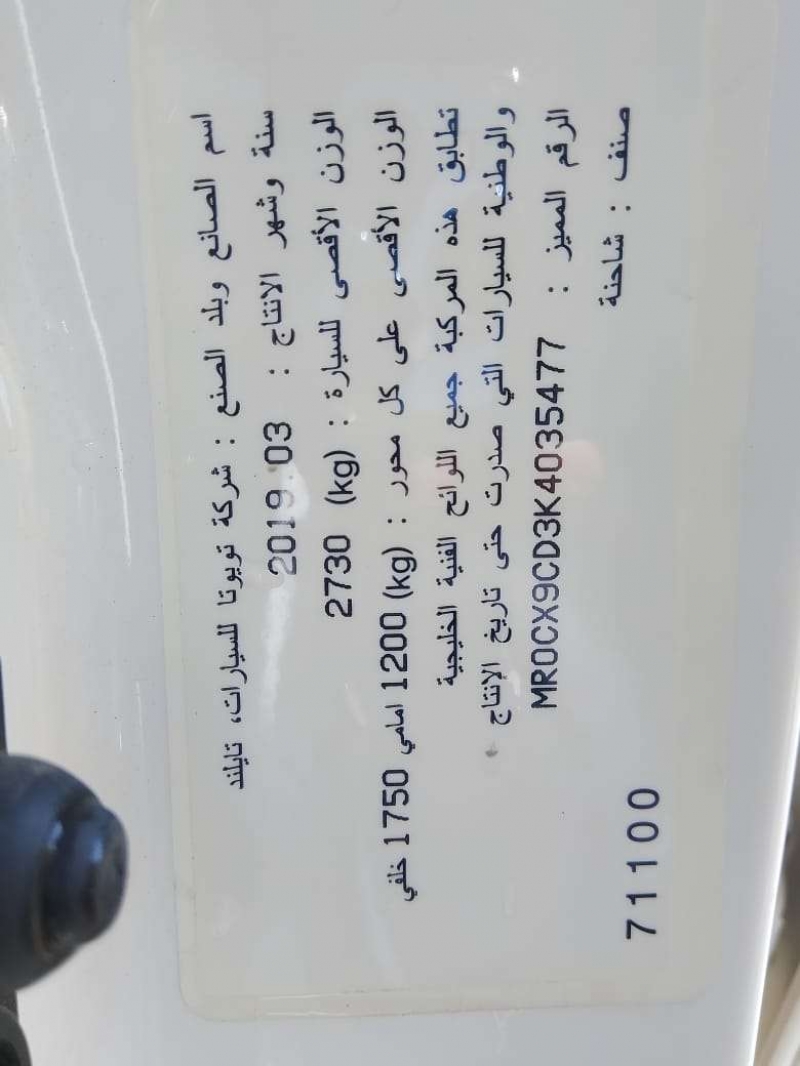 اسم الصانع وبلد الصنع : شركة تويوتا للسيارات، تايلند
سنة وشهر الانتاج : 2019.03
الوزن الأقصى للسيارة : (kg) 2730
الوزن الأقصى على كل محور : (kg) 1200 امامي 1750 خلفي
تطابق هذه المركبة جميع اللوائح الفنية الخليجية
والوطنية للسيارات التي صدرت حتى تاريخ الإنتاج
الرقم المميز : MR0CX9CD3K4035477
صنف : شاحنة
71100